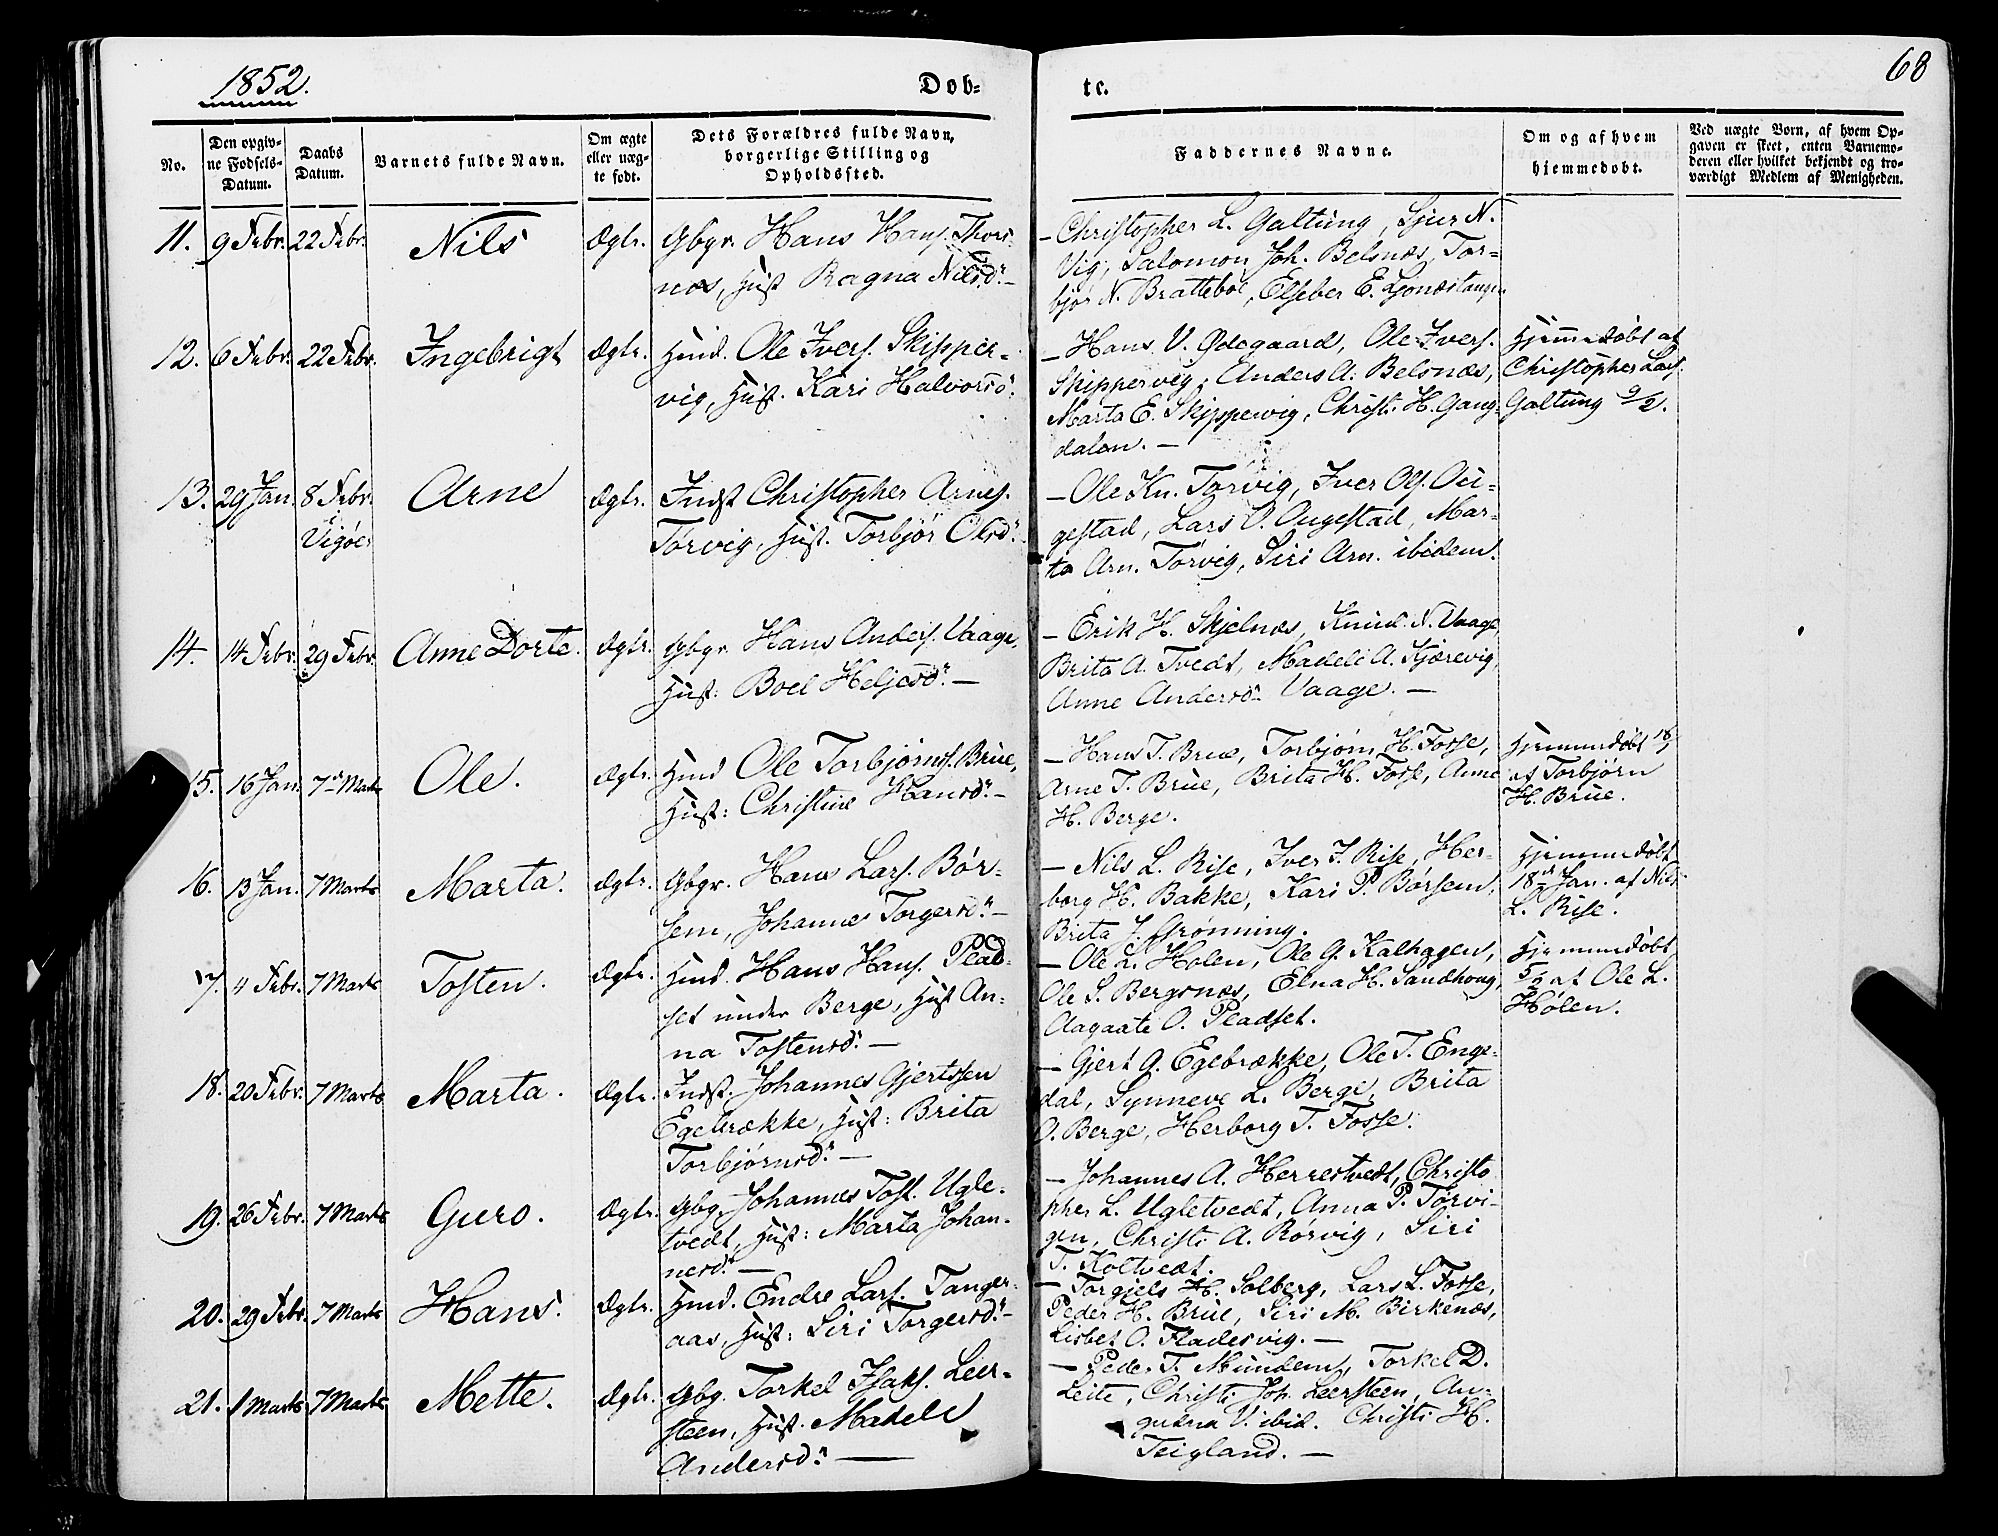 1852.
Døb-
te.
68
No.
Den opgiv-
ne Fødsels-
Datum.
Daabs
Datum.
Barnets fulde Navn.
Om ægte
eller uæg-
te født.
Dets Forældres fulde Navn,
borgerlige Stilling og
Opholdssted.
Faddernes Navne.
Om og af hvem
hjemmedøbt.
Ved uægte Børn, af hvem Op-
gaven er skeet, enten Barnemo-
deren eller hvilket bekjendt og tro-
værdigt Medlem af Menigheden.
11. 9 Febr. 22 Febr. Nils Ægte. Gbgr. Hans Hans. Thors-
næs, Hust Ragna Nilsd.
– Christopher L. Galtung, Sjur N.
Vig, Salomon Joh. Belsnæs, Tor-
bjør N. Brattebøe, Elseber E. Lionæstangen
12. 6 Febr. 22 Febr. Ingebrigt Ægte. Hmd. Ole Ivers. Skipper-
vig, Hust. Kari Halvorsd.
– Hans V. Ødegaard, Ole Ivers.
Skippervig, Anders A. Belsnæs,
Marta E. Skippervig, Christi H. Gang-
dalen. –
Hjemmedøbt af
Christopher Lars.
Galtung 9/2.
13. 29 Jan. 8 Febr. Arne Ægte. Indst Christopher Arnes.
Vigøer
Torvig, Hust. Torbjør Olsd.
– Ole Kn. Torvig, Iver Ols. Au-
gestad, Lars O. Augestad, Mar-
ta Arn. Torvig, Siri Arn. ibidem.
14. 14 Febr. 29 Febr. Anne Dorte. Ægte. Gbgr. Hans Anders. Vaage,
Hust: Boel Heljesd. –
– Erik H. Skjelnæs, Knud N. Vaage,
Brita A. Tvedt, Madele A. Kjærevig,
Anne Andersd. Vaage. –
15. 16 Jan. 7de Marts Ole. Ægte. Hmd Ole Torbjørns. Brue,
Hust: Christine Hansd. –
– Hans T. Brue, Torbjørn H. Fosse,
Arne T. Brue, Brita H. Fosse, Anne
H. Berge.
Hjemmedøbt 18/1
af Torbjørn
H. Brue.
16. 13 Jan. 7 Marts Marta. Ægte. Gbgr. Hans Lars. Bør-
sem, Johanne Torgersd. –
– Nils L. Rise, Iver I. Rise, Her-
borg H. Bakke, Kari P. Børsem,
Brita J. Grønning.
Hjemmedøbt
18de Jan. af Nils
L. Rise.
17. 4 Febr. 7 Marts Tosten. Ægte. Hmd. Hans Hans. Plad-
set under Berge, Hust An-
na Tostensd. –
– Ole L. Holen, Ole G. Kalhagen,
Ole S. Bergsnæs, Elna H. Sandhoug,
Aagaate O. Pladset.
Hjemmedøbt
5/2 af Ole L.
Hølen.
18. 20 Febr. 7 Marts Marta. Ægte. Indst. Johannes Gjertssen
Egebrække, Hust: Brita
Torbjørnsd. –
– Gjert A. Egebrække, Ole T. Enge-
dal, Synneve L. Berge, Brita
O. Berge, Herborg T. Fosse.
19. 26 Febr. 7 Marts Guro. Ægte. Gbg. Johannes Tost. Ugle-
tvedt, Hust: Marta Johan-
nesd. –
– Johannes A. Herrestvedt, Christo
pher L. Ugletvedt, Anna P. Torvi-
gen, Christi A. Rørvig, Siri
T. Koltvedt.
20. 29 Febr. 7 Marts Hans. Ægte. Hmd. Endre Lars. Tanger-
aas, Hust: Siri Torgersd. –
– Torgjels H. Solberg, Lars L. Fosse,
Peder H. Brue, Siri M. Birkenæs,
Lisbet O. Fladesvig. –
21. 1 Marts 7 Marts Mette. Ægte. Gbg. Torkel Isaks. Leer-
steen, Hust. Madele
Andersd. –
– Peder T. Mundem, Torkel D.
Leite, Christi Joh. Leersteen, An-
gudna V. ibid. Christi H.
Teigland. –